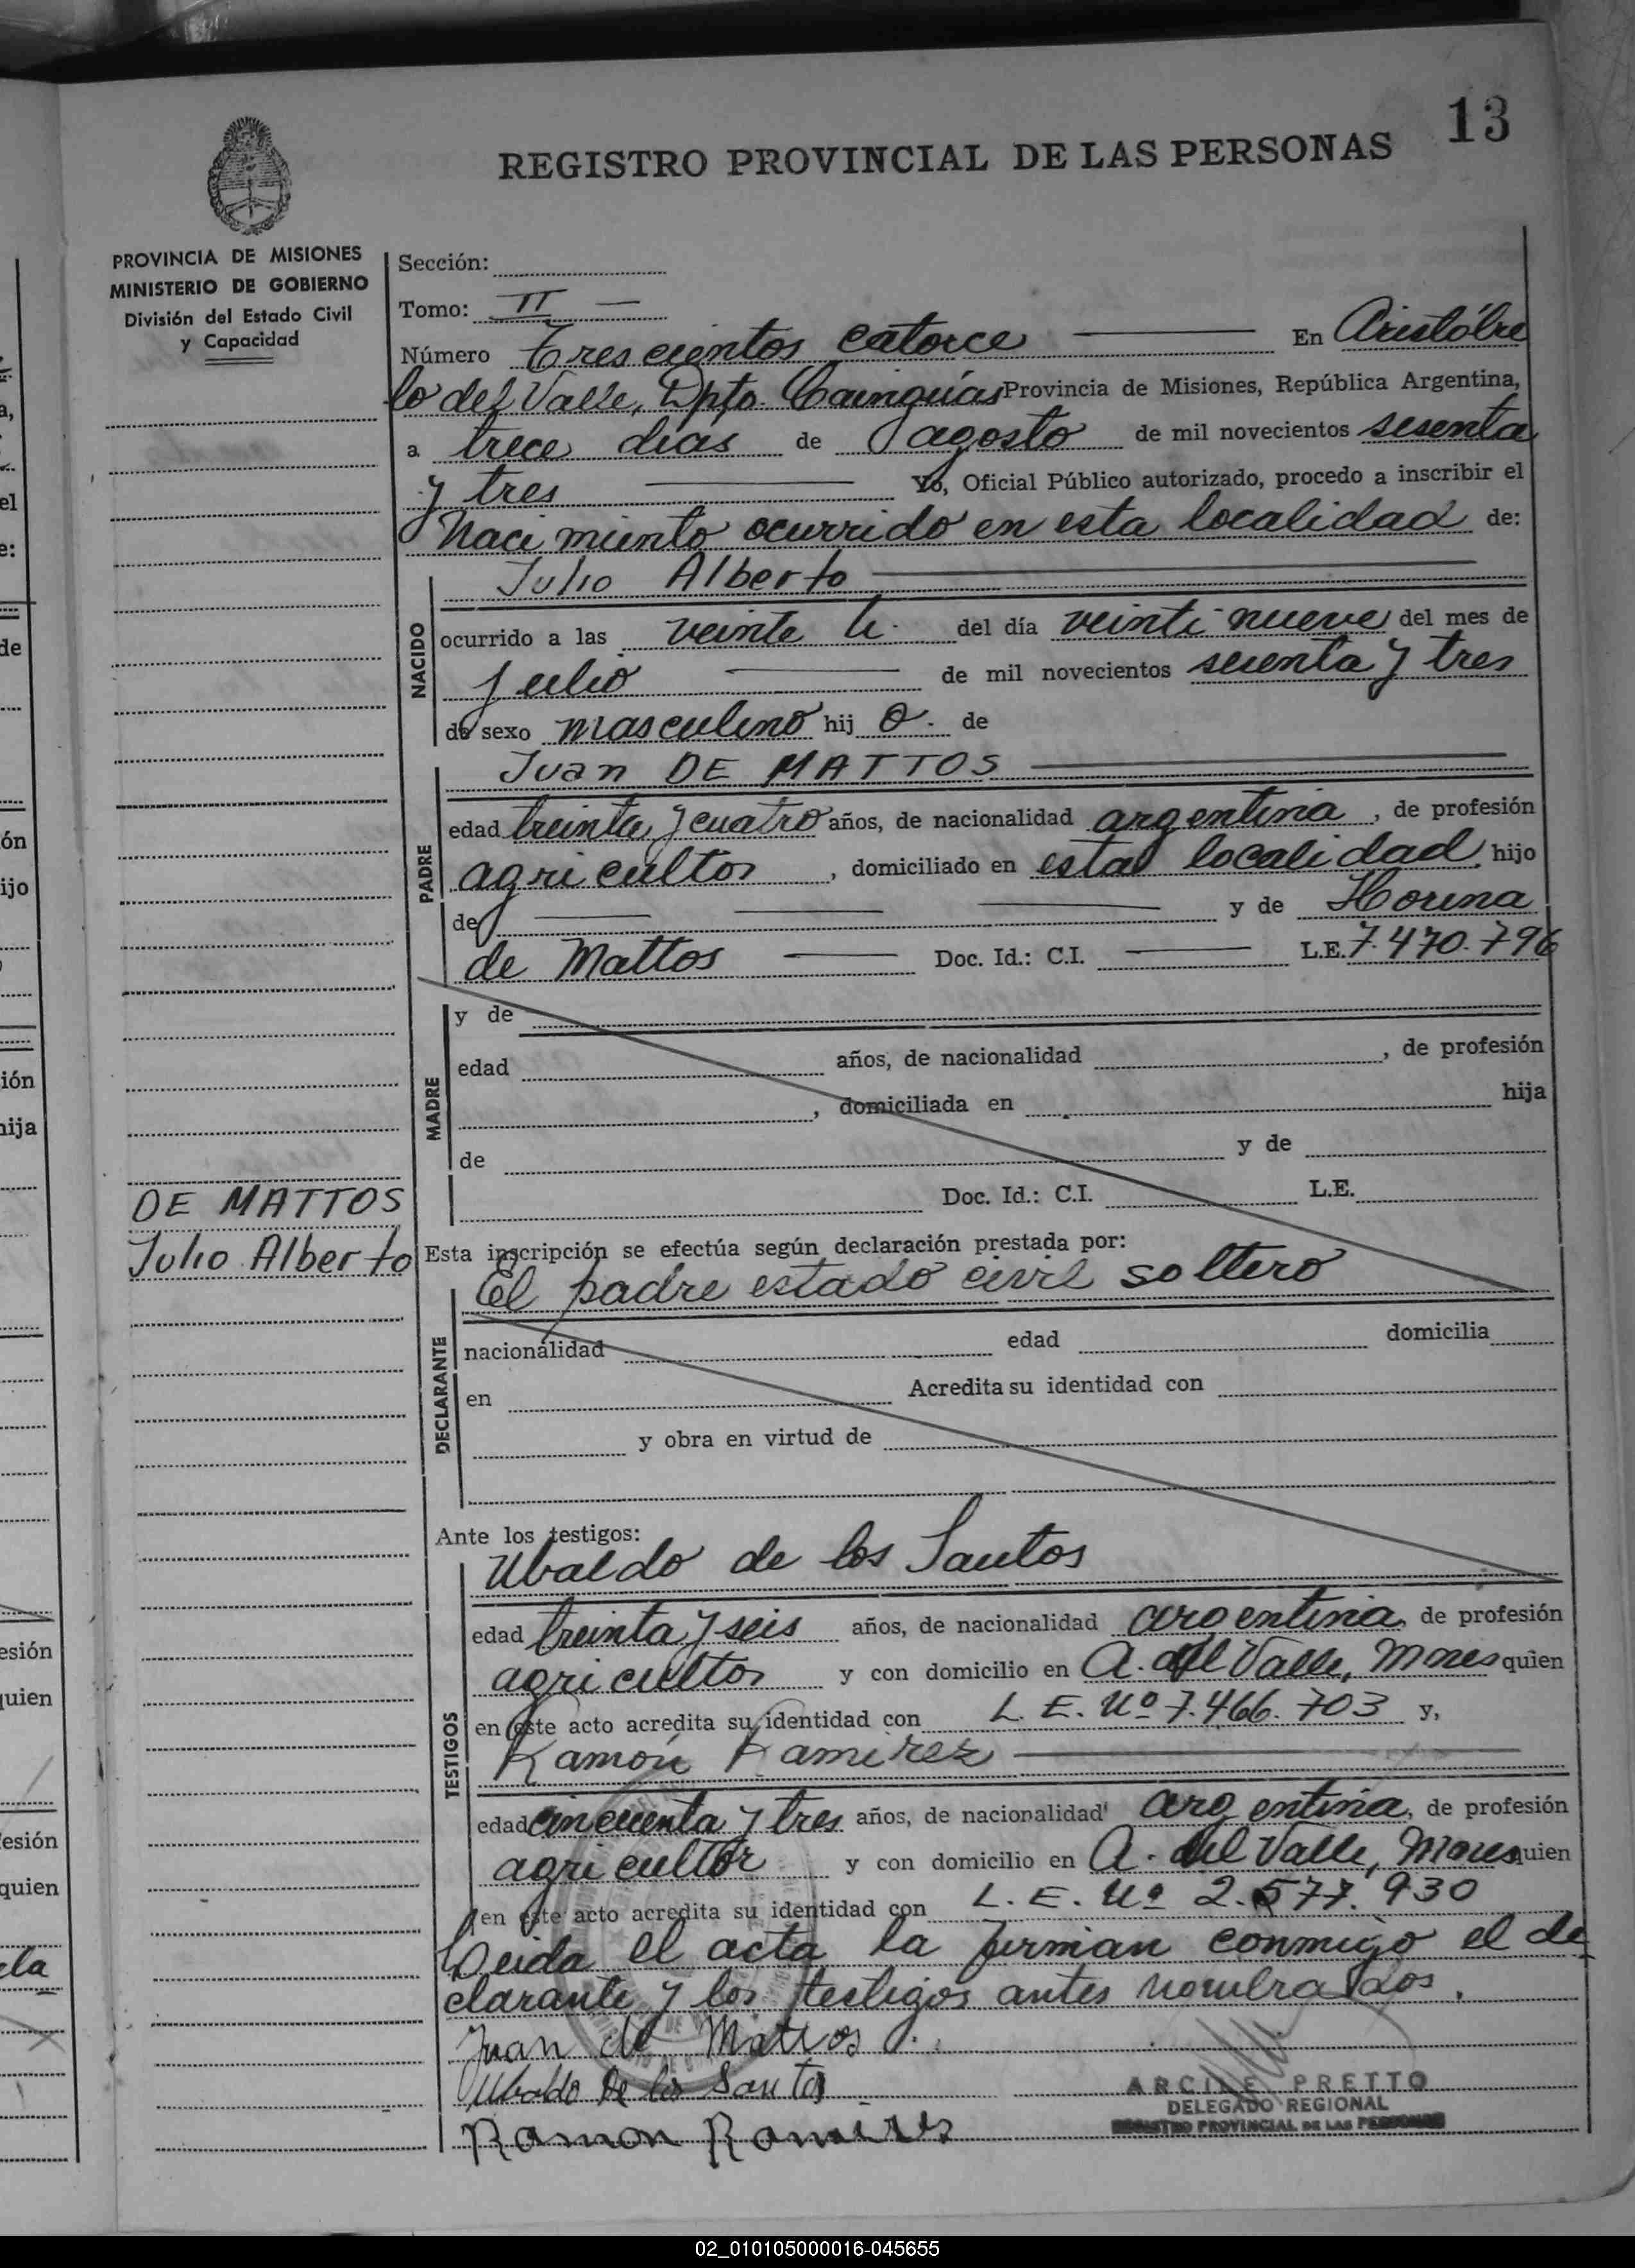 13
REGISTRO PROVINCIAL DE LAS PERSONAS
PROVINCIA DE MISIONES
MINISTERIO DE GOBIERNO
División del Estado Civil
y Capacidad
Sección:
Tomo: II —
Número Trescientos catorce — En Aristóbu
lo del Valle, Dpto. Cainguás Provincia de Misiones, República Argentina,
a trece días de agosto de mil novecientos sesenta
y tres — Yo, Oficial Público autorizado, procedo a inscribir el
Nacimiento ocurrido en esta localidad de:
Julio Alberto —
NACIDO
ocurrido a las veinte h. del día veinti nueve del mes de
Julio — de mil novecientos sesenta y tres
de sexo masculino hij o. de
Juan DE MATTOS —
PADRE
edad treinta y cuatro años, de nacionalidad argentina, de profesión
agricultor, domiciliado en esta localidad, hijo
de — — — y de
de Mattos — Doc. Id.: C.I. — L.E. 7.470.796
MADRE
y de
edad años, de nacionalidad , de profesión
, domiciliada en hija
de y de
Doc. Id.: C.I. L.E.
DE MATTOS
Julio Alberto
Esta inscripción se efectúa según declaración prestada por:
El padre estado civil soltero
DECLARANTE
nacionalidad edad domicilia
en Acredita su identidad con
y obra en virtud de
Ante los testigos:
Ubaldo de los Santos
TESTIGOS
edad treinta y seis años, de nacionalidad argentina, de profesión
agricultor y con domicilio en A. del Valle, Mnes quien
en este acto acredita su identidad con L. E. Nº 7.466.703 y,
Ramón Ramirez —
edad cincuenta y tres años, de nacionalidad argentina, de profesión
agricultor y con domicilio en A. del Valle, Mnes quien
en este acto acredita su identidad con L. E. Nº 2.577.930
Leida el acta la firman conmigo el de
clarante y los testigos antes nombrados.
Juan de Mattos
Ubaldo De los Santos
Ramon Ramires
ARCILE PRETTO
DELEGADO REGIONAL
REGISTRO PROVINCIAL DE LAS PERSONAS
02_010105000016-045655